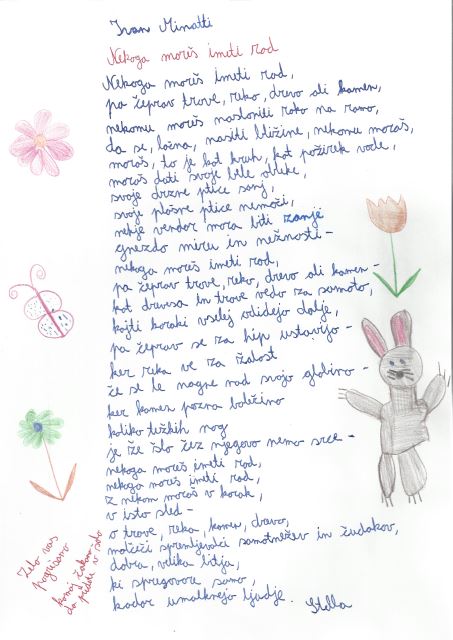 Ivan Minatti
Nekoga moraš imeti rad
Nekoga moraš imeti rad,
pa čeprav trave, reko, drevo ali kamen,
nekomu moraš nasloniti roko na ramo,
da se, lačna, nasiti bližine, nekomu moraš,
moraš, to je kot kruh, kot požirek vode,
moraš dati svoje bele oblake,
svoje drzne ptice sanj,
svoje plašne ptice nemoči,
nekje vendar mora biti zanje
gnezdo miru in nežnosti -
nekoga moraš imeti rad,
pa čeprav trave, reko, drevo ali kamen -
kot drevesa in trave vedo za samoto,
kajti koraki vselej odidejo dalje,
pa čeprav se za hip ustavijo -
ker reka ve za žalost
če se le nagne nad svojo globino -
ker kamen pozna bolečino
koliko težkih nog
je že šlo čez njegovo nemo srce -
nekoga moraš imeti rad,
nekoga moraš imeti rad,
z nekom moraš v korak,
v isto sled -
o trave, reka, kamen, drevo,
molčeči spremljevalci samotnežev in čudakov,
dobra, velika bitja,
ki spregovore samo,
kadar umolknejo ljudje.
Stella
Zelo vas
pogrešamo
komaj čakam
da pridete v šolo